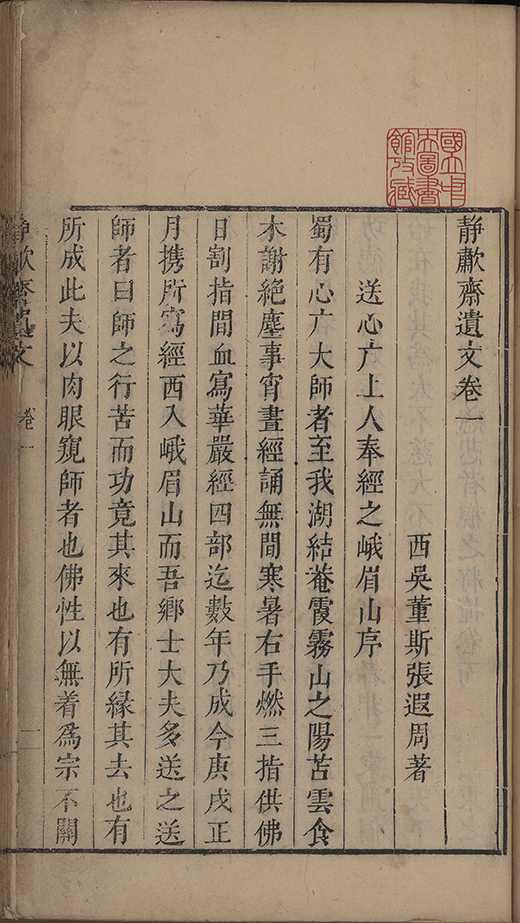 國立中
央圖書
館收藏
靜歗齋遺文卷一
西吳董斯張遐周著
送心亢上人奉經之峨眉山序
蜀有心亢大師者至我湖結菴霞霧山之陽苫雲食
木謝絕塵事宵晝經誦無間寒暑右手燃三指供佛
日割指間血寫華嚴經四部迄數年乃成今庚戌正
月攜所寫經西入峨眉山而吾鄉士大夫多送之送
師者曰師之行苦而功竟其來也有所緣其去也有
所成此夫以肉眼窺師者也佛性以無着為宗不關
靜歗齋遺文 卷一 一